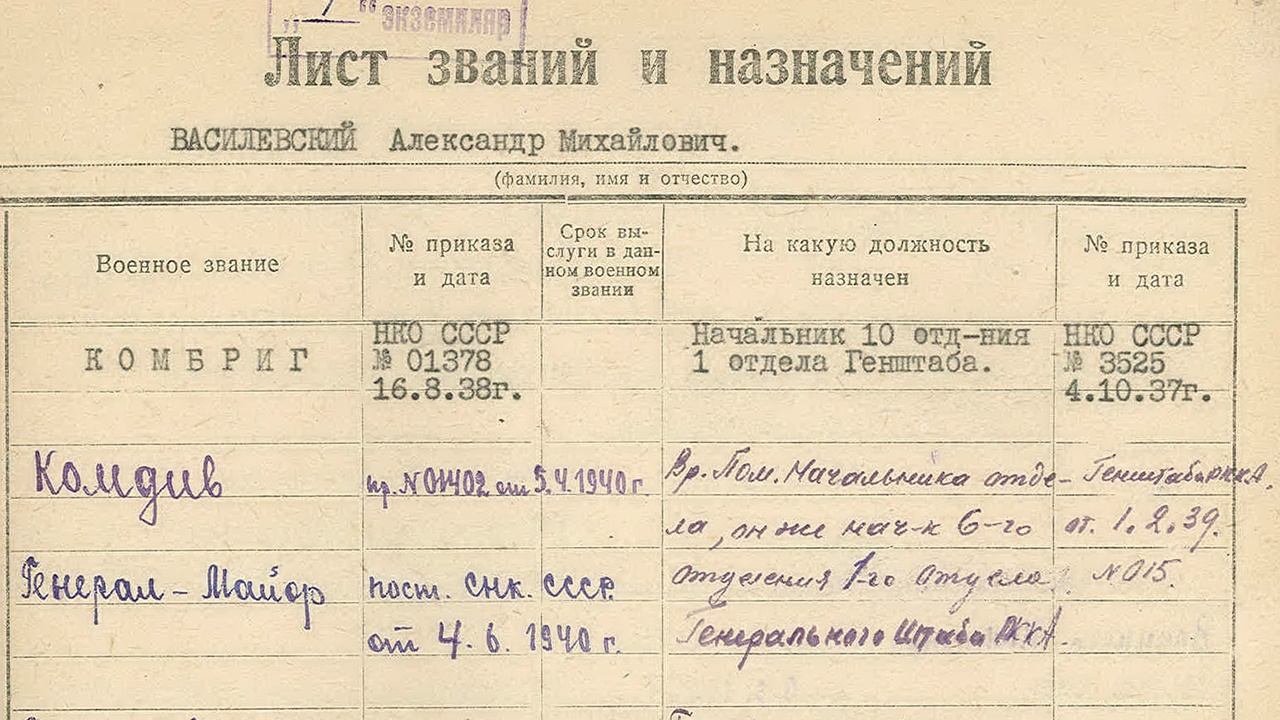 „ 1 “ экземпляр
Лист званий и назначений
ВАСИЛЕВСКИЙ Александр Михайлович.
(фамилия, имя и отчество)
Военное звание
№ приказа
и дата
Срок вы-
слуги в дан-
ном военном
звании
На какую должность
назначен
№ приказа
и дата
КОМБРИГ
НКО СССР
№ 01378
16.8.38г.
Начальник 10 отд-ния
1 отдела Генштаба.
НКО СССР
№ 3525
4.10.37г.
Комдив
пр. №01402 от 5.4.1940г.
Вр. Пом. Начальника отде-
ла, он же нач-к 6-го
отделения 1-го отдела
Генерального Штаба РККА
Генштаба РККА.
от. 1.2.39.
№ 015.
Генерал-Майор
пост. СНК. СССР.
от 4.6.1940г.